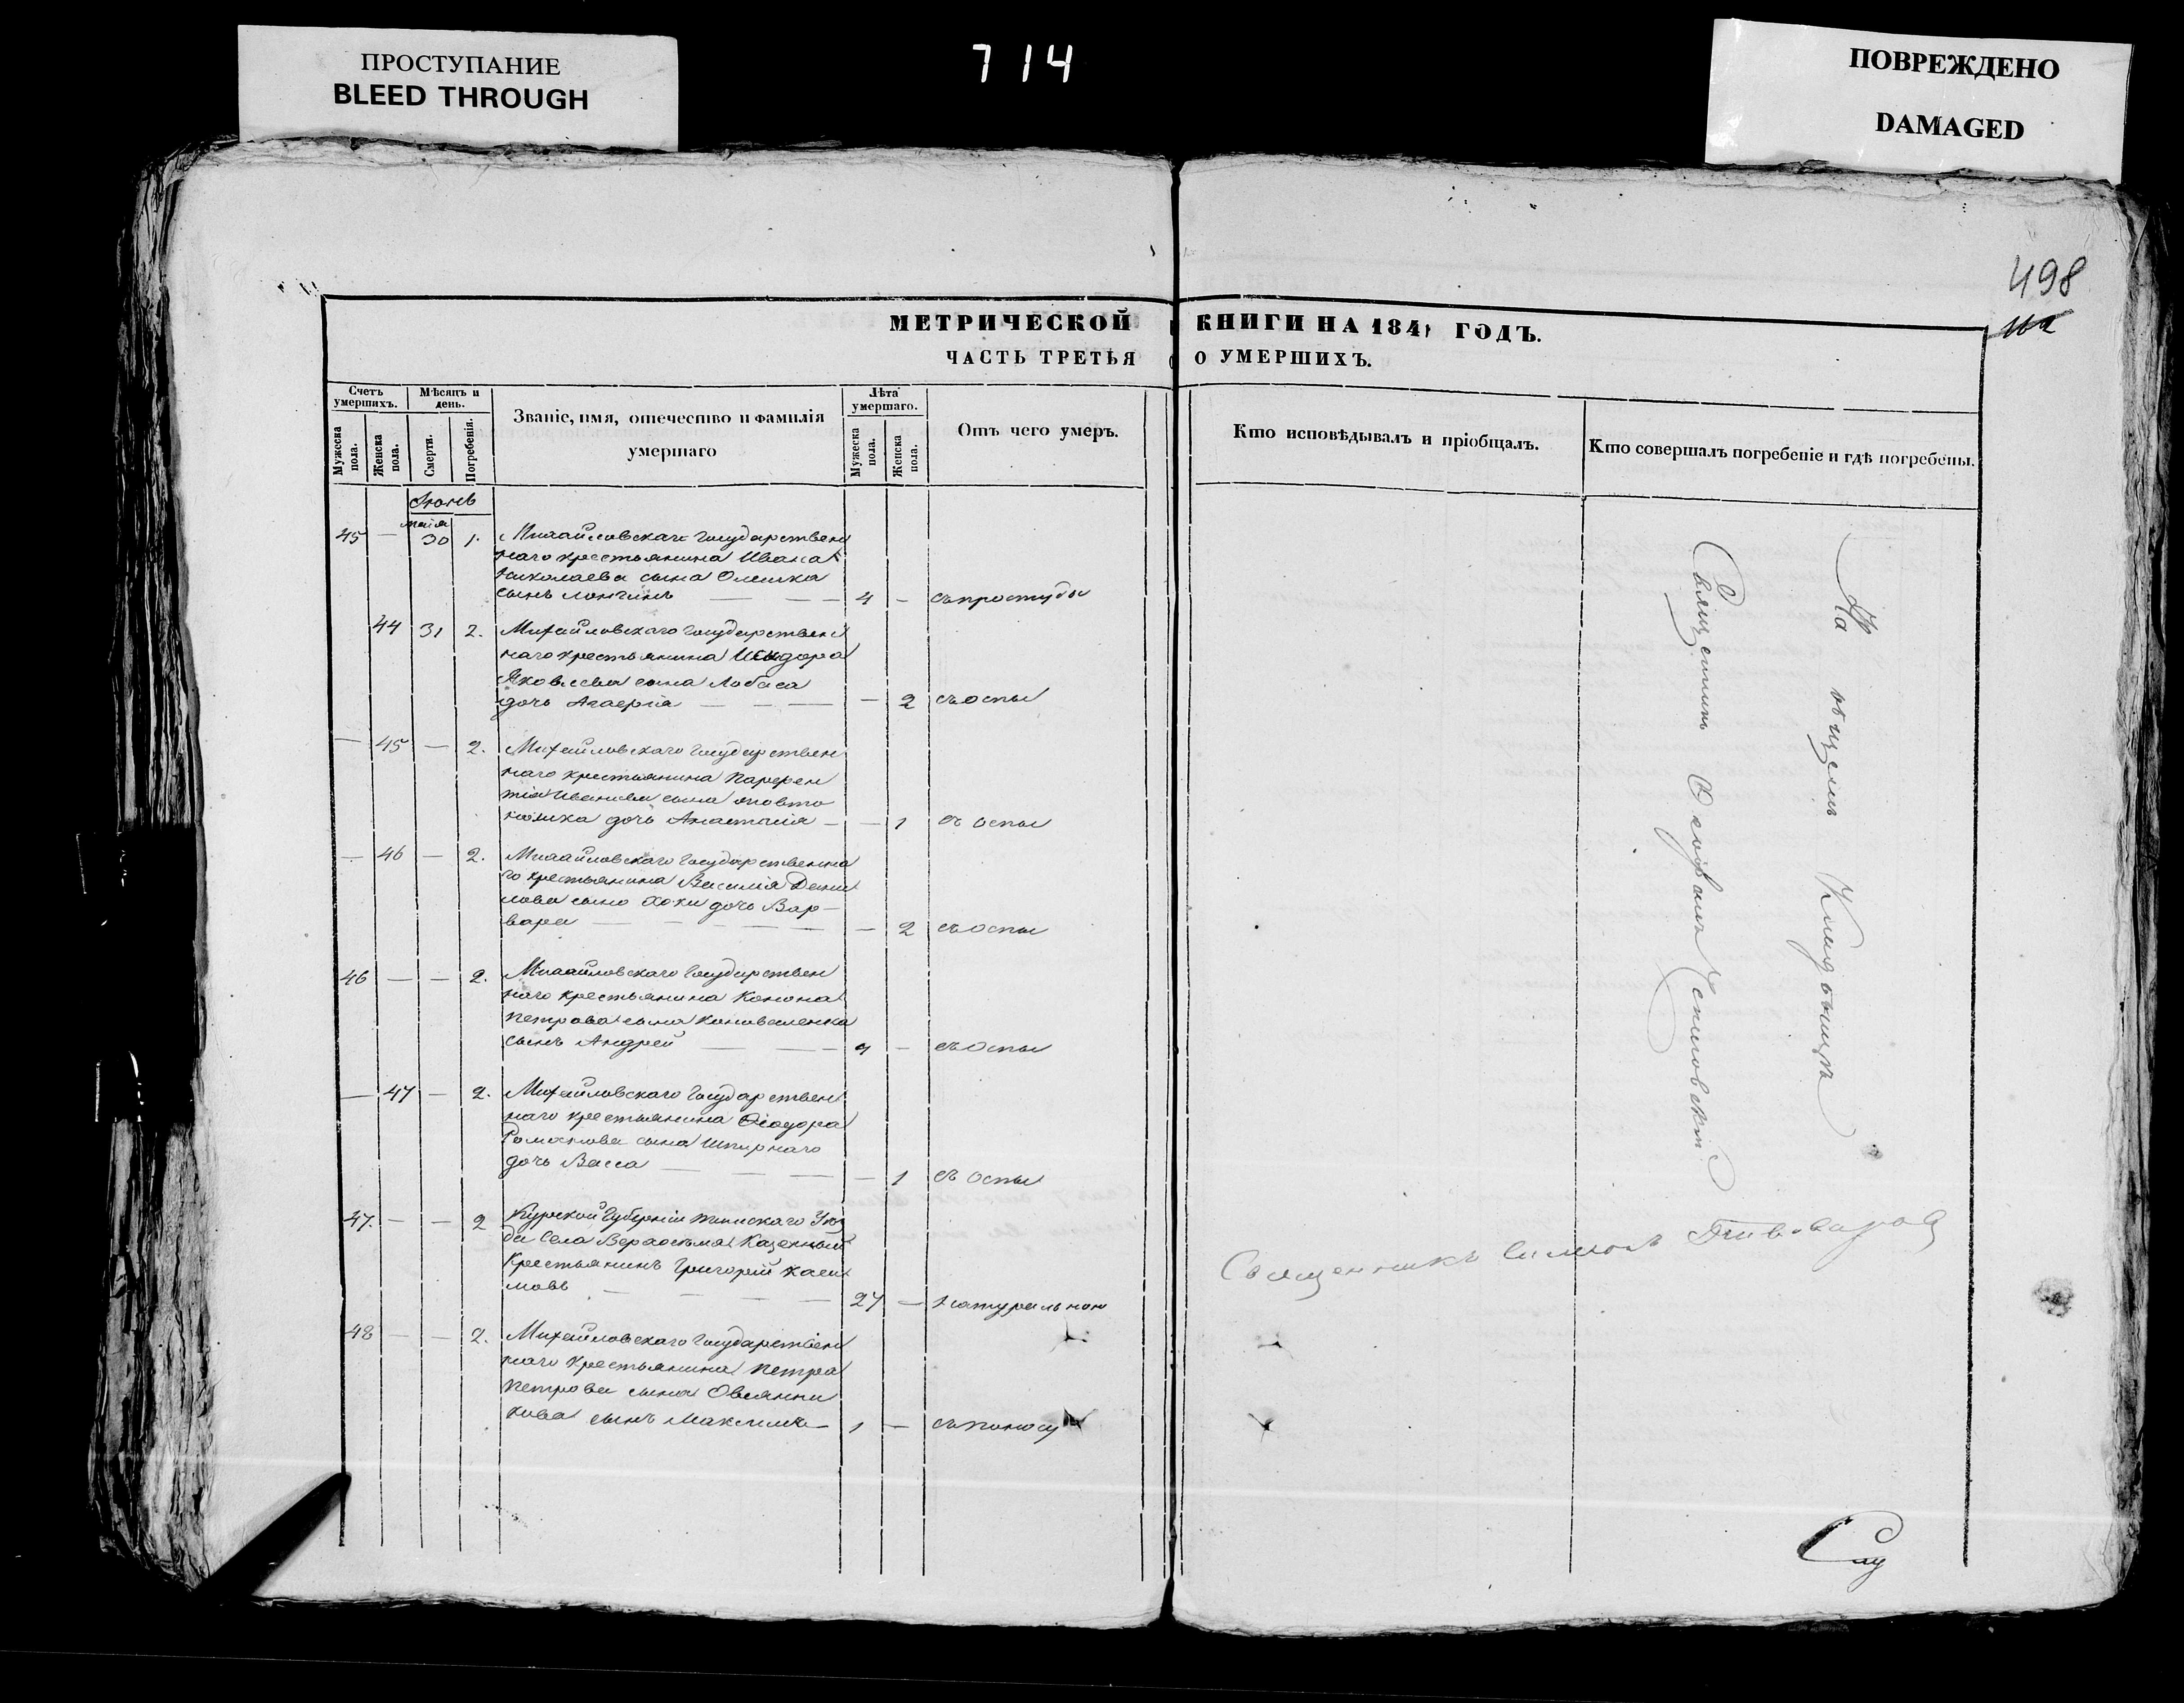 ПРОСТУПАНИЕ
BLEED THROUGH
714
ПОВРЕЖДЕНО
DAMAGED
498
МЕТРИЧЕСКОЙ КНИГИ НА 1841 ГОДЪ.
ЧАСТЬ ТРЕТЬЯ О УМЕРШИХЪ.
Счетъ умершихъ.
Мужеска пола.
Женска пола.
Мѣсяцъ и день.
Смерти.
Погребенія.
Званіе, имя, отечество и фамилія
умершаго
Лѣта умершаго.
Мужеска пола.
Женска пола.
Отъ чего умеръ.
Кто исповѣдывалъ и пріобщалъ.
Кто совершалъ погребеніе и гдѣ погребены.
Іюнь
маія
45 — 30 1. Михайловскаго Государствен
наго крестьянина Ивана
Николаева сына
сынъ Лонгинъ — 4 — съ простуды
44 31 2. Михайловскаго Государствен
наго крестьянина Исидора
Яковлева сына Лобаса
дочь — — 2 съ оспы
— 45 — 2. Михайловскаго Государствен
наго крестьянина Парфен
тія Иванова сына
дочь Анастасія — — 1 съ оспы
— 46 — 2. Михайловскаго Государственна
го крестьянина Василія Дани
лова сына дочь Вар-
вара — — 2 съ оспы
46 — — 2. Михайловскаго Государствен
наго крестьянина Конона
Петрова сына Коноваленка
сынъ Андрей — — съ оспы
— 47 — 2. Михайловскаго Государствен
наго крестьянина Ѳіодора
Романова сына
дочь Васса — — 1 съ оспы
47. — — 2 Курской Губерніи Уѣз
да Села Казенный
Крестьянинъ Григорій
мовъ — 27 — натурально
48 — — 2. Михайловскаго Государствен
наго Крестьянина Петра
Петрова сына Овсянни
кова сынъ Максимъ — 1 — съ поносу
На общемъ Кладбищѣ
Священникъ
Священникъ Симонъ Пивоваровъ